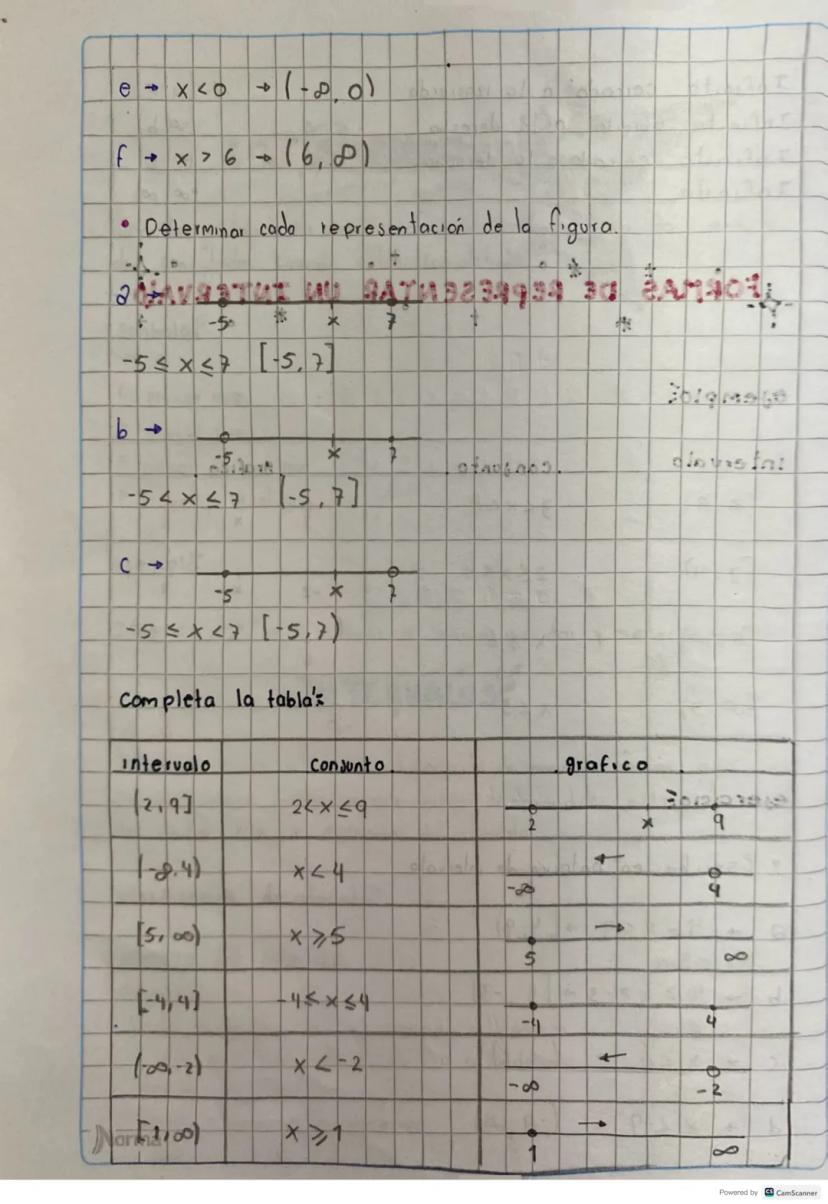 e → x < 0 → (-∞, 0)
f → x > 6 → (6, ∞)
• Determinar cada representación de la figura.
a →
-5 x 7
-5 ≤ x ≤ 7 [-5, 7]
b →
-5 x 7
-5 < x ≤ 7 [-5, 7]
c →
-5 x 7
-5 ≤ x < 7 [-5, 7)
completa la tabla:
intervalo conjunto grafico
(2, 9] 2 < x ≤ 9 2 x 9
(-∞, 4) x < 4 ← -∞ 4
[5, ∞) x ≥ 5 → 5 ∞
[-4, 4] -4 ≤ x ≤ 4 -4 4
(-∞, -2) x < -2 ← -∞ -2
[1, ∞) x ≥ 1 → 1 ∞
Norma
Powered by CS CamScanner